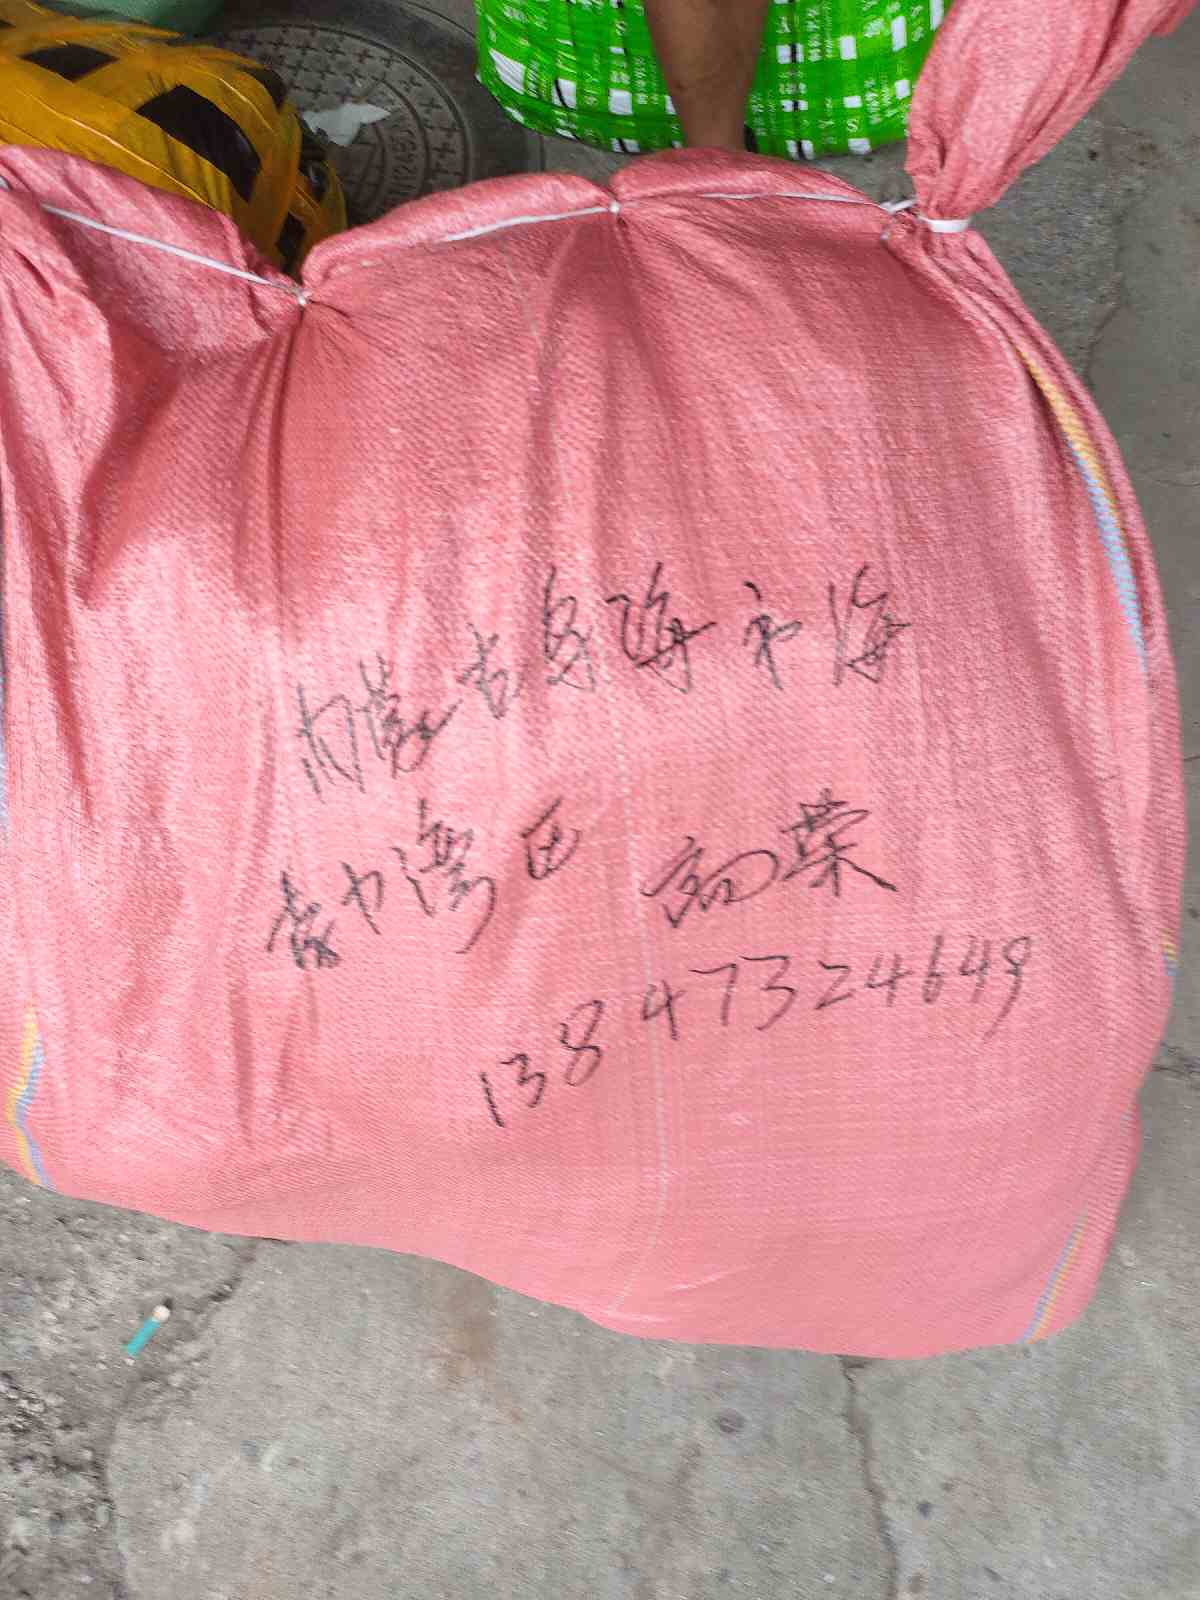 内蒙古乌海市海
勃湾区 荣
13847324649